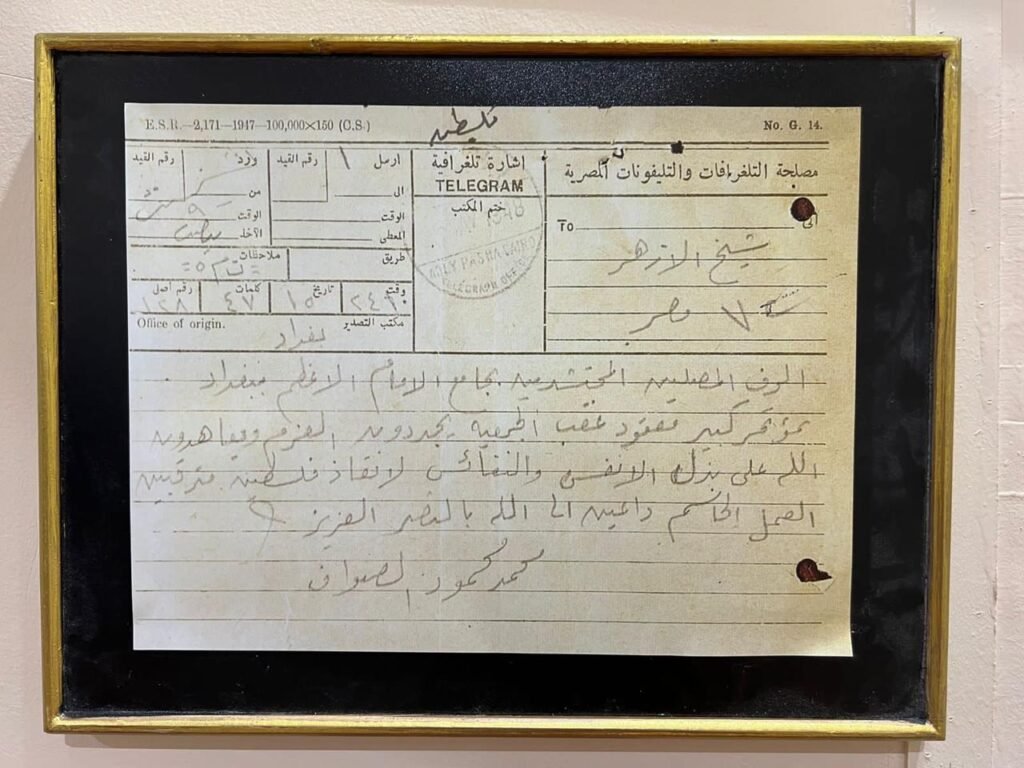 E.S.R.—2,171—1947—100,000×150 (C.S.)
فلسطين
No. G. 14.
مصلحة التلغرافات والتليفونات المصرية
اشارة تلغرافية
TELEGRAM
ختم المكتب
1948
ADLY PASHA CAIRO
TELEGRAPH OFFICE
ارسل
رقم القيد
الى
الوقت
المعطى
ورد
رقم القيد
من
الوقت
الآخذ
طريق
ملاحظات
وقت
تاريخ ١٥
كلمات ٤٧
رقم اصل ١٢٨
Office of origin.
مكتب التصدير
بغداد
To
الى
شيخ الازهر
مصر
الوف المصلين المحتشدين بجامع الامام الاعظم ببغداد
بمؤتمر كبير معقود عقب الجمعة يجددون العزم ويعاهدون
الله على بذل الانفس والنفائس لانقاذ فلسطين مترقبين
العمل الحاسم داعين الى الله بالنصر العزيز
محمد محمود الصواف